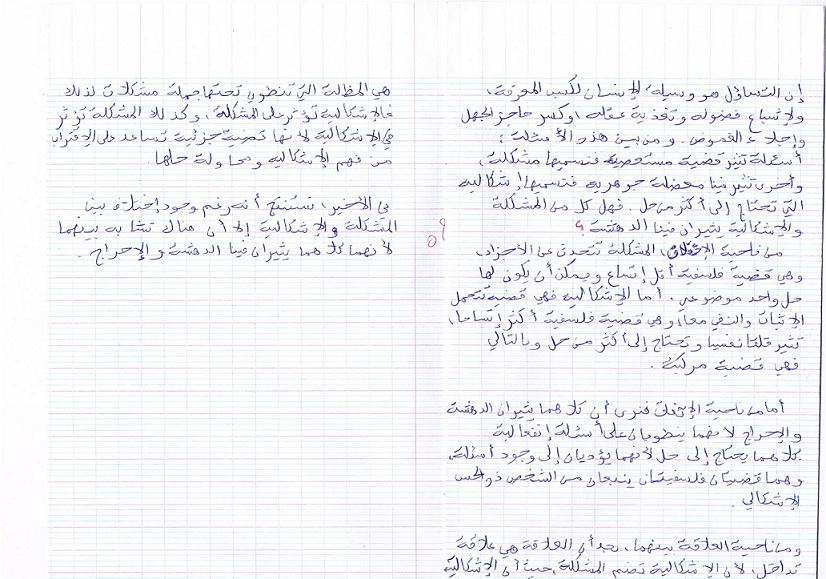 إن التساؤل هو وسيلة الإنسان لكسب المعرفة،
ولإشباع فضوله وتغذية عقله، وكسر حاجز الجهل
وإجلاء الغموض. ومن بين هذه الأسئلة:
أسئلة تثير قضية مستعصية فنسميها مشكلة،
وأخرى تثير فينا معضلة جوهرية فنسميها إشكالية
التي تحتاج إلى أكثر من حل. فهل كل من المشكلة
والإشكالية يثيران فينا الدهشة؟
من ناحية الإختلاف، المشكلة تتحدث عن الأجزاء،
وهي قضية فلسفية أقل إتساع ويمكن أن يكون لها
حل واحد موضوعي. أما الإشكالية فهي قضية تحتمل
الإثبات والنفي معا، وهي قضية فلسفية أكثر إتساعا،
تثير قلقا نفسيا وتحتاج إلى أكثر من حل وبالتالي
فهي قضية مركبة.
أما من ناحية الإتفاق فنرى أن كلاهما يثيران الدهشة
والإحراج لأنهما ينطويان على أسئلة إنفعالية
كلاهما يحتاج إلى حل لأنهما يؤديان إلى وجود أسئلة،
وهما قضيتان فلسفيتان ينبعان من الشخص ذو الحس
الإشكالي.
ومن ناحية العلاقة بينهما، نجد أن العلاقة هي علاقة
تداخل، لأن الإشكالية تضم المشكلة، حيث أن الإشكالية
هي المظلة التي تنطوي تحتها جملة مشكلات لذلك
فالإشكالية تؤثر على المشكلة، وكذلك المشكلة تؤثر
في الإشكالية لأنها قضية جزئية تساعد على الإقتراب
من فهم الإشكالية ومحاولة حلها.
في الأخير، نستنتج أنه رغم وجود إختلاف بين
المشكلة والإشكالية إلا أن هناك تشابه بينهما
لأنهما كلاهما يثيران فينا الدهشة والإحراج.